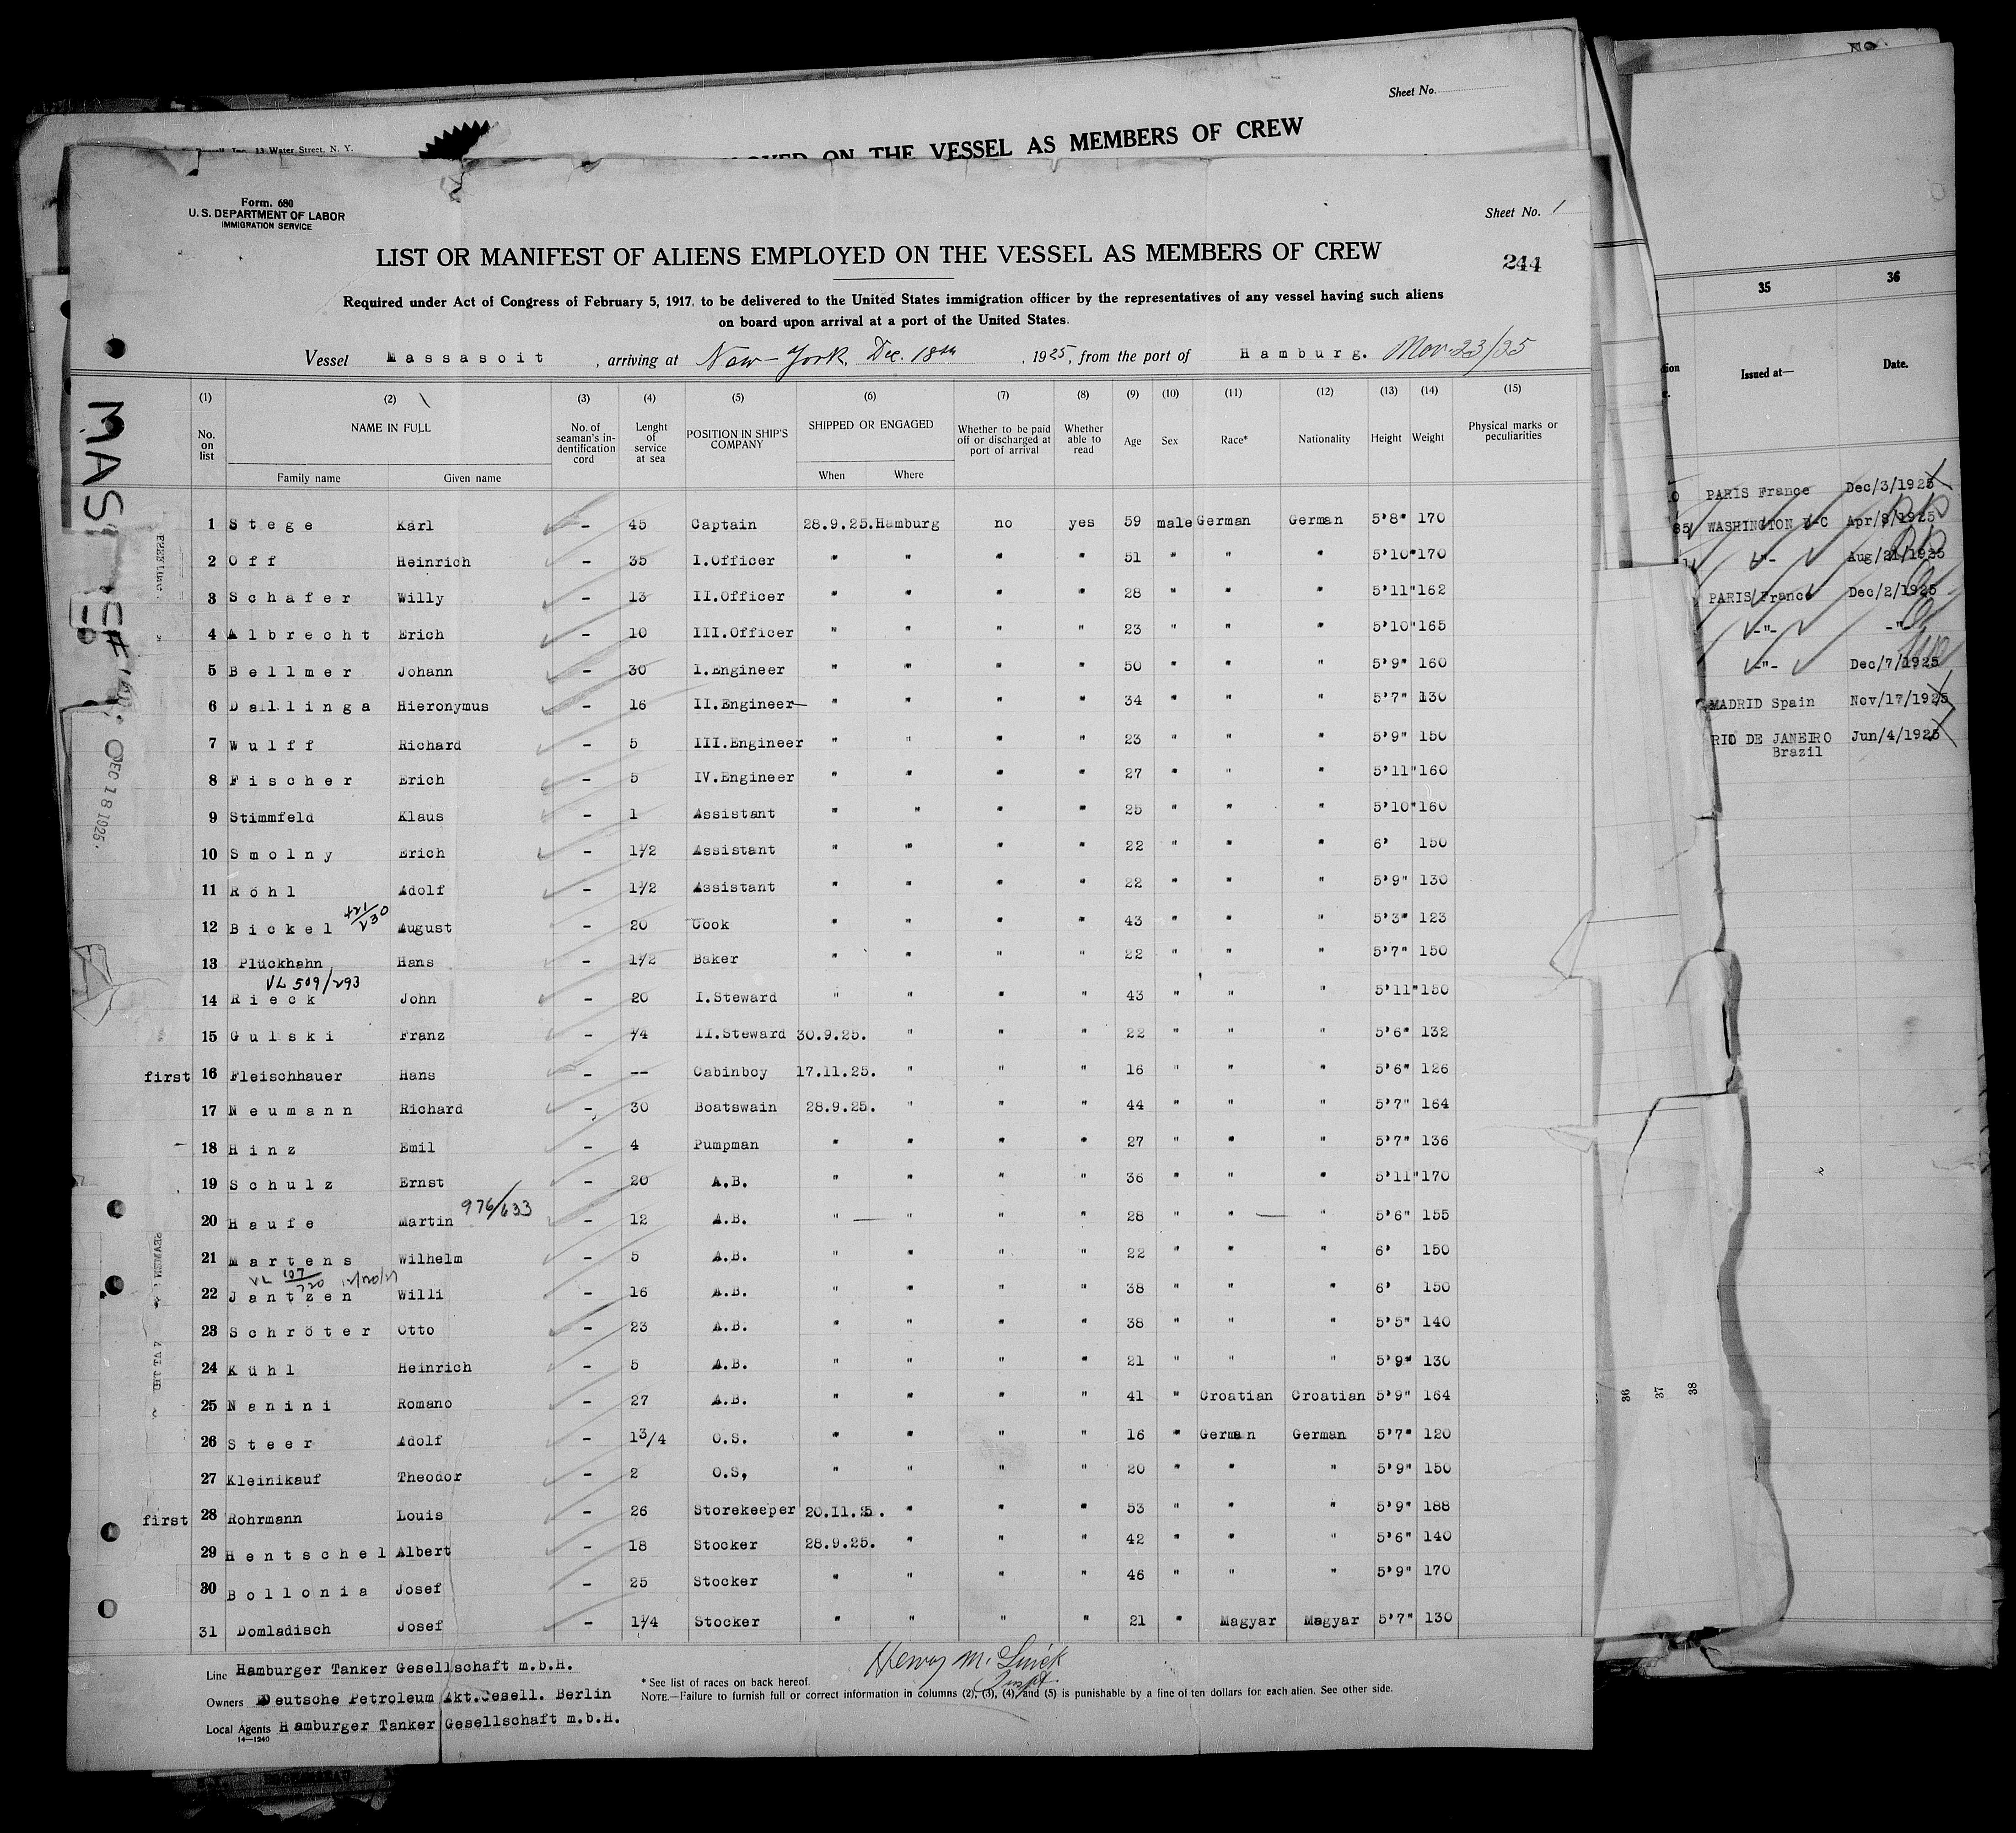 Sheet No.
13 Water Street, N. Y.
ON THE VESSEL AS MEMBERS OF CREW
Form. 680
U. S. DEPARTMENT OF LABOR
IMMIGRATION SERVICE
Sheet No. 1
LIST OR MANIFEST OF ALIENS EMPLOYED ON THE VESSEL AS MEMBERS OF CREW
244
Required under Act of Congress of February 5, 1917, to be delivered to the United States immigration officer by the representatives of any vessel having such aliens
on board upon arrival at a port of the United States.
Vessel Massasoit , arriving at New-York, Dec. 18th , 1925, from the port of Hamburg. Nov-23/25
(1) (2) (3) (4) (5) (6) (7) (8) (9) (10) (11) (12) (13) (14) (15)
No. on list NAME IN FULL Family name Given name No. of seaman's in-dentification cord Lenght of service at sea POSITION IN SHIP'S COMPANY SHIPPED OR ENGAGED When Where Whether to be paid off or discharged at port of arrival Whether able to read Age Sex Race* Nationality Height Weight Physical marks or peculiarities
1 Stege Karl - 45 Captain 28.9.25. Hamburg no yes 59 male German German 5'8" 170
2 Off Heinrich - 35 I.Officer " " " " 51 " " " 5'10" 170
3 Schäfer Willy - 13 II.Officer " " " " 28 " " " 5'11" 162
4 Albrecht Erich - 10 III.Officer " " " " 23 " " " 5'10" 165
5 Bellmer Johann - 30 I.Engineer " " " " 50 " " " 5'9" 160
6 Dallinga Hieronymus - 16 II.Engineer " " " " 34 " " " 5'7" 130
7 Wulff Richard - 5 III.Engineer " " " " 23 " " " 5'9" 150
8 Fischer Erich - 5 IV.Engineer " " " " 27 " " " 5'11" 160
9 Stimmfeld Klaus - 1 Assistant " " " " 25 " " " 5'10" 160
10 Smolny Erich - 1½ Assistant " " " " 22 " " " 6' 150
11 Röhl Adolf - 1½ Assistant " " " " 22 " " " 5'9" 130
12 Bickel August - 20 Cook " " " " 43 " " " 5'3" 123
13 Plückhahn Hans - 1½ Baker " " " " 22 " " " 5'7" 150
VL 509/293
14 Rieck John - 20 I.Steward " " " " 43 " " " 5'11" 150
15 Gulski Franz - ¼ II.Steward 30.9.25. " " " 22 " " " 5'6" 132
first 16 Fleischhauer Hans - -- Cabinboy 17.11.25. " " " 16 " " " 5'6" 126
17 Neumann Richard - 30 Boatswain 28.9.25. " " " 44 " " " 5'7" 164
18 Hinz Emil - 4 Pumpman " " " " 27 " " " 5'7" 136
19 Schulz Ernst - 20 A.B. " " " " 36 " " " 5'11" 170
976/633
20 Haufe Martin - 12 A.B. " " " " 28 " " " 5'6" 155
21 Martens Wilhelm - 5 A.B. " " " " 22 " " " 6' 150
22 Jantzen Willi - 16 A.B. " " " " 38 " " " 6' 150
23 Schröter Otto - 23 A.B. " " " " 38 " " " 5'5" 140
24 Kühl Heinrich - 5 A.B. " " " " 21 " " " 5'9" 130
25 Nanini Romano - 27 A.B. " " " " 41 " Croatian Croatian 5'9" 164
26 Steer Adolf - 1¾ O.S. " " " " 16 " German German 5'7" 120
27 Kleinikauf Theodor - 2 O.S, " " " " 20 " " " 5'9" 150
first 28 Rohrmann Louis - 26 Storekeeper 20.11.25. " " " 53 " " " 5'9" 188
29 Hentschel Albert - 18 Stocker 28.9.25. " " " 42 " " " 5'6" 140
30 Bollonia Josef - 25 Stocker " " " " 46 " " " 5'9" 170
31 Domladisch Josef - 1¼ Stocker " " " " 21 " Magyar Magyar 5'7" 130
Line Hamburger Tanker Gesellschaft m.b.H.
Owners Deutsche Petroleum Akt.Gesell. Berlin
Local Agents Hamburger Tanker Gesellschaft m.b.H.
14—1240
* See list of races on back hereof.
NOTE.—Failure to furnish full or correct information in columns (2), (3), (4), and (5) is punishable by a fine of ten dollars for each alien. See other side.
DEC 18 1925.
35 36
Issued at— Date.
PARIS France Dec/3/1925
WASHINGTON D-C Apr/8/1925
-"- Aug/21/1925
PARIS France Dec/2/1925
-"- -"-
-"- Dec/7/1925
MADRID Spain Nov/17/1925
RIO DE JANEIRO Jun/4/1925
Brazil
36 37 38